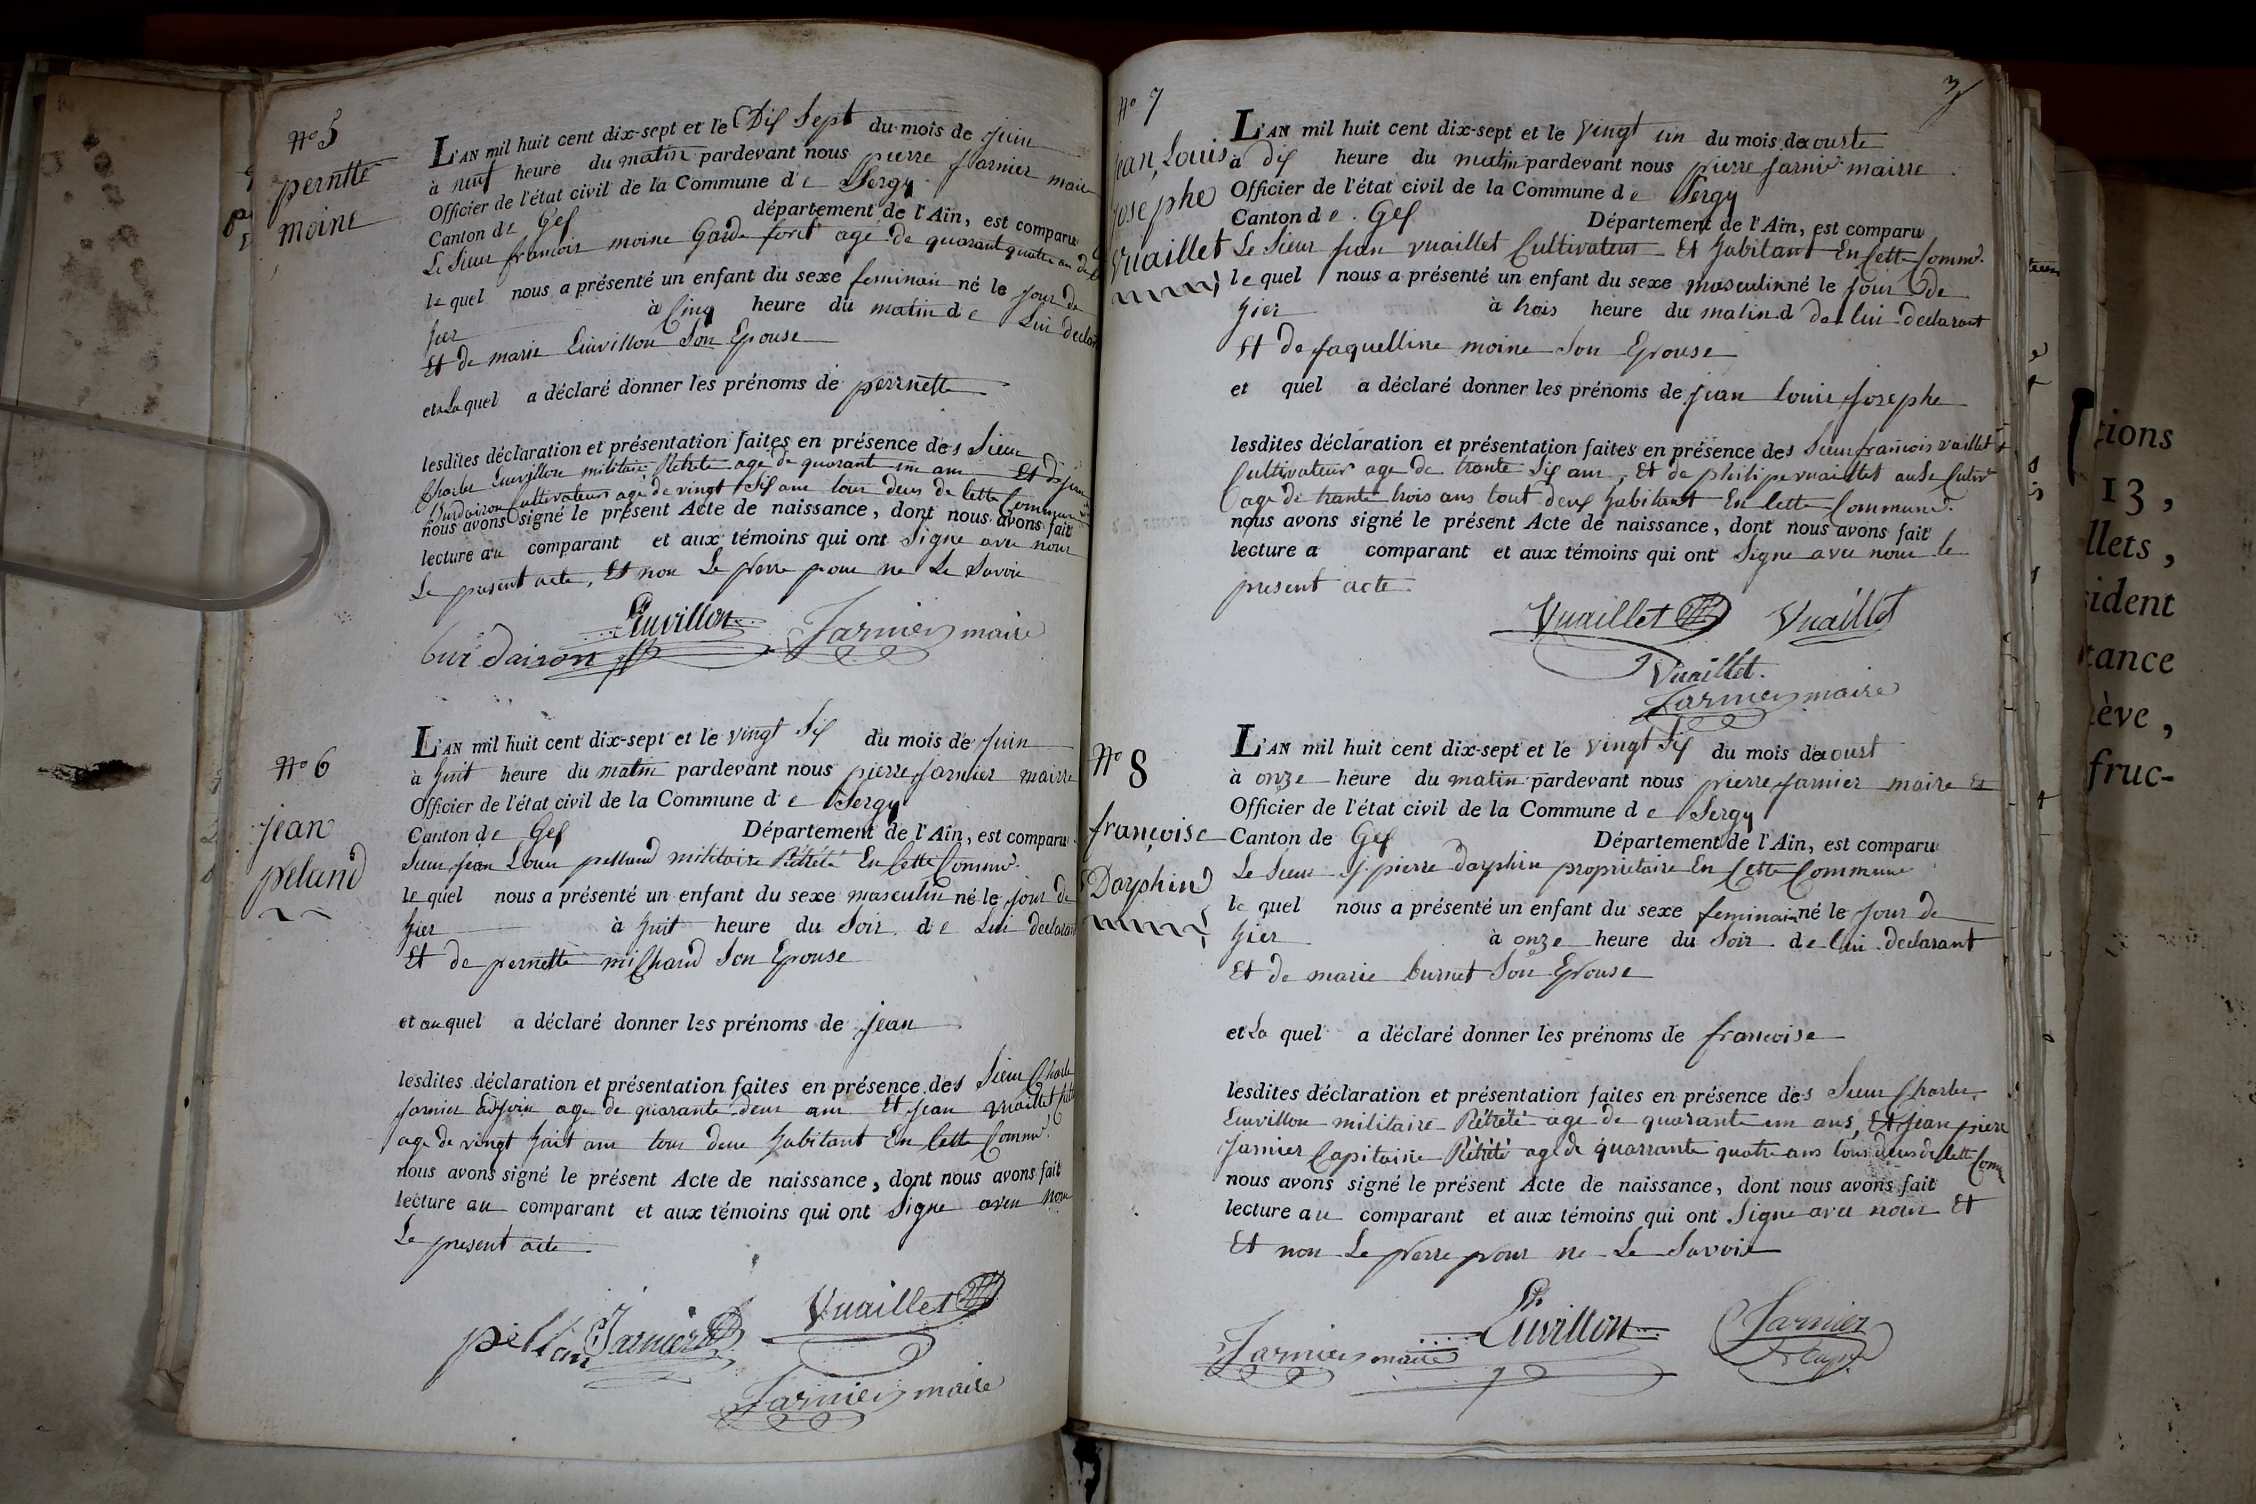 No 5
pernette
moine
L'AN mil huit cent dix-sept et le Dix Sept du mois de juin
à neuf heure du matin pardevant nous pierre Jarnier maire
Officier de l'état civil de la Commune de Sergy
Canton de Gex département de l'Ain, est comparu
Le Sieur francois moine Garde foret age de quarant quatre an
le quel nous a présenté un enfant du sexe feminain né le jour de
hier à Cinq heure du matin de Lui declarant
Et de marie Euvillon Son Epouse
et a Laquel a déclaré donner les prénoms de perrnette
lesdites déclaration et présentation faites en présence des Sieur
Charles Euvillon militaire Rétrété age de quarant un ans Et
Burdairon Cultivateur agé de vingt Six ans tous deus de Cette Commune
nous avons signé le présent Acte de naissance, dont nous avons fait
lecture au comparant et aux témoins qui ont Signe avec nous
Le present acte, Et non Le perre pour ne Le Savoir
Euvillon
burdairon Jarnier maire
No 6
jean
peland
L'AN mil huit cent dix-sept et le vingt Six du mois de juin
à huit heure du matin pardevant nous pierre Jarnier mairre
Officier de l'état civil de la Commune de Sergy
Canton de Gex Département de l'Ain, est comparu
Sieur jean Louis pelland militaire Rétrété En Cette Commne.
le quel nous a présenté un enfant du sexe masculin né le jour de
hier à huit heure du Soir de Lui declarant
Et de pernette michaud Son Epouse
et auquel a déclaré donner les prénoms de jean
lesdites déclaration et présentation faites en présence des Sieur Charle
Jarnier adjoin age de quarante deux ans Et jean vuaillet
age de vingt huit ans tous deux habitant En Cette Commne.
nous avons signé le présent Acte de naissance, dont nous avons fait
lecture au comparant et aux témoins qui ont Signe avec nous
Le present acte
pellan Jarnier Vuaillet
Jarnier maire
3
No 7
jean, Louis
josephe
vuaillet
L'AN mil huit cent dix-sept et le vingt un du mois de aouste
à dix heure du matin pardevant nous pierre Jarnier mairre
Officier de l'état civil de la Commune de Sergy
Canton de Gex Département de l'Ain, est comparu
Le Sieur jean vuaillet Cultivateur Et habitant En Cette Commne.
le quel nous a présenté un enfant du sexe masculin né le jour de
hier à trois heure du matin d de lui declarant
Et de jaquelline moine Son Epouse
et quel a déclaré donner les prénoms de jean louis josephe
lesdites déclaration et présentation faites en présence des Sieur francois vaillet
Cultivateur age de trante Six ans, Et de philipe vuaillet
age de trante trois ans tout deux habitant En Cette Commune.
nous avons signé le présent Acte de naissance, dont nous avons fait
lecture a comparant et aux témoins qui ont Signe avec nous le
present acte
Vuaillet Vuaillet
Vuaillet.
Jarnier maire
No 8
françoise
Dayphin
L'AN mil huit cent dix-sept et le vingt Six du mois de aoust
à onze heure du matin pardevant nous pierre Jarnier maire Et
Officier de l'état civil de la Commune de Sergy
Canton de Gex Département de l'Ain, est comparu
Le Sieur J. pierre dayphin proprietaire En Cette Commune
le quel nous a présenté un enfant du sexe feminain né le jour de
hier à onze heure du Soir de lui declarant
Et de marie burnet Son Epouse
et La quel a déclaré donner les prénoms de francoise
lesdites déclaration et présentation faites en présence des Sieur Charles
Euvillon militaire Rétrété age de quarante un ans, Et jean piere
Jarnier Capitaine Rétrété age de quarrante quatre ans tous deus de Cette Comm
nous avons signé le présent Acte de naissance, dont nous avons fait
lecture au comparant et aux témoins qui ont Signe avec nous Et
Et non Le perre pour ne Le Savoir
Jarnier maire Euvillon Jarnier
tions
13,
llets,
sident
tance
ève,
fruc-